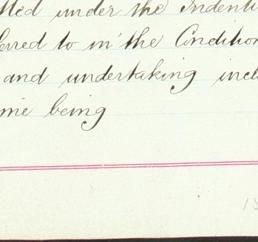 tted under the Indentu
ferred to in the Condition
and undertaking incl
me being